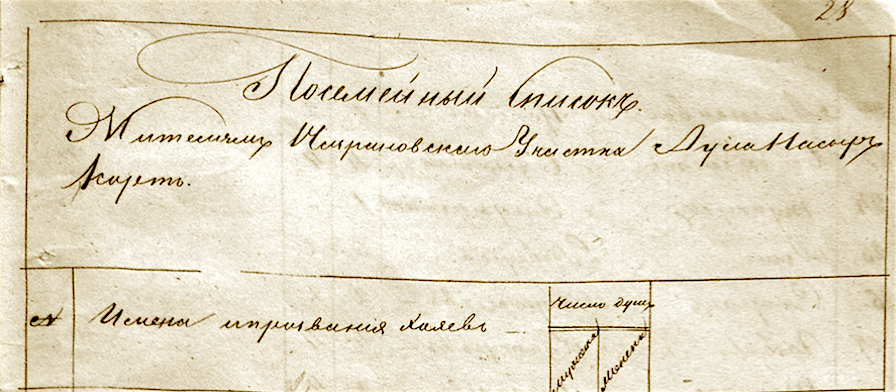 28
Посемейный Списокъ.
Жителямъ Назрановскаго Участка Аула Насыръ
Кортъ.
№ Имена и прозвания Хозяевъ Число душъ
Мужска Женска